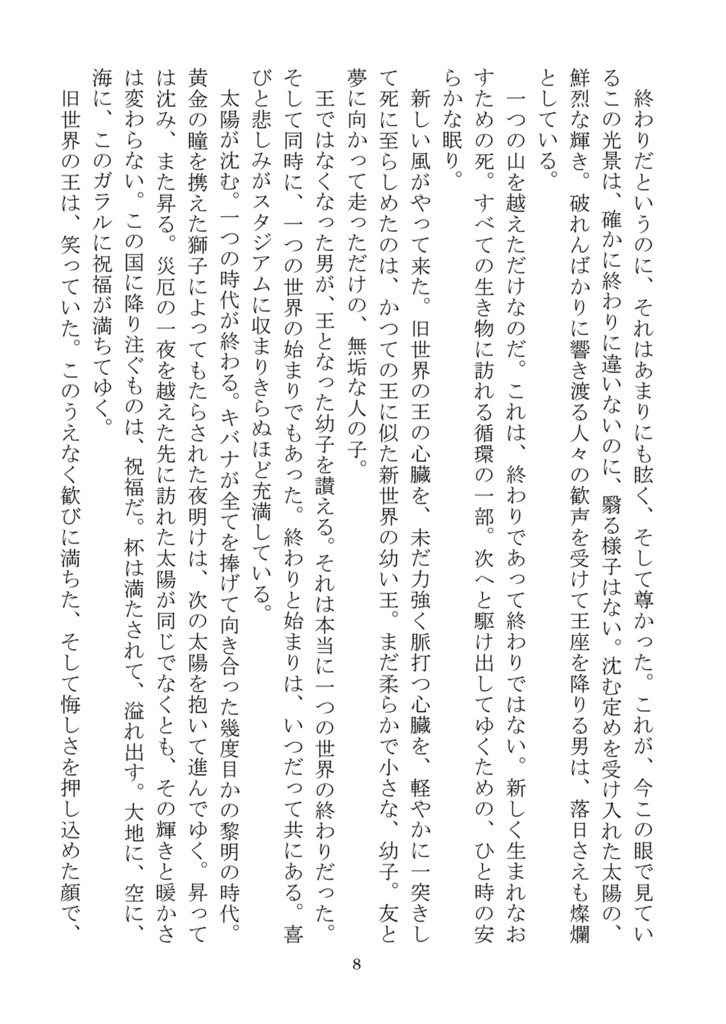 終わりだというのに、それはあまりにも眩く、そして尊かった。これが、今この眼で見てい
るこの光景は、確かに終わりに違いないのに、翳る様子はない。沈む定めを受け入れた太陽の、
鮮烈な輝き。破れんばかりに響き渡る人々の歓声を受けて王座を降りる男は、落日さえも燦爛
としている。
一つの山を越えただけなのだ。これは、終わりであって終わりではない。新しく生まれなお
すための死。すべての生き物に訪れる循環の一部。次へと駆け出してゆくための、ひと時の安
らかな眠り。
新しい風がやって来た。旧世界の王の心臓を、未だ力強く脈打つ心臓を、軽やかに一突きし
て死に至らしめたのは、かつての王に似た新世界の幼い王。まだ柔らかで小さな、幼子。友と
夢に向かって走っただけの、無垢な人の子。
王ではなくなった男が、王となった幼子を讃える。それは本当に一つの世界の終わりだった。
そして同時に、一つの世界の始まりでもあった。終わりと始まりは、いつだって共にある。喜
びと悲しみがスタジアムに収まりきらぬほど充満している。
太陽が沈む。一つの時代が終わる。キバナが全てを捧げて向き合った幾度目かの黎明の時代。
黄金の瞳を携えた獅子によってもたらされた夜明けは、次の太陽を抱いて進んでゆく。昇って
は沈み、また昇る。災厄の一夜を越えた先に訪れた太陽が同じでなくとも、その輝きと暖かさ
は変わらない。この国に降り注ぐものは、祝福だ。杯は満たされて、溢れ出す。大地に、空に、
海に、このガラルに祝福が満ちてゆく。
旧世界の王は、笑っていた。このうえなく歓びに満ちた、そして悔しさを押し込めた顔で、
8